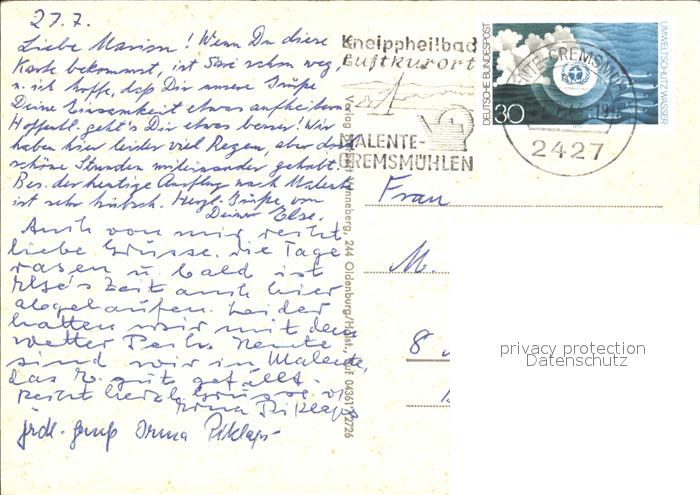 27.7.
Liebe Marion! Wenn Du diese
Karte bekommst, ist schon weg,
u. ich hoffe, daß Dir unsere Grüße
Deine Einsamkeit etwas aufheitern
Hoffentl. geht's Dir etwas besser! Wir
haben hier leider viel Regen, aber doch
schöne Stunden miteinander gehabt.
Bes. der heutige Ausflug nach Malente
ist sehr hübsch. Herzl. Grüße von
Deiner Else.
Auch von mir recht
liebe Grüsse. die Tage
rasen u. bald ist
Else's Zeit auch hier
abgelaufen. Leider
hatten wir mit dem
Wetter Pech. Heute
sind wir in Malente,
das gut gefällt.
Recht herzl. Grüsse
Irma Piklaps
Irma Piklaps
Kneippheilbad
Luftkurort
MALENTE-
GREMSMÜHLEN
DEUTSCHE BUNDESPOST
30
UMWELTSCHUTZ WASSER
2427
Frau
M.
8
244 Oldenburg/Holst.
privacy protection
Datenschutz